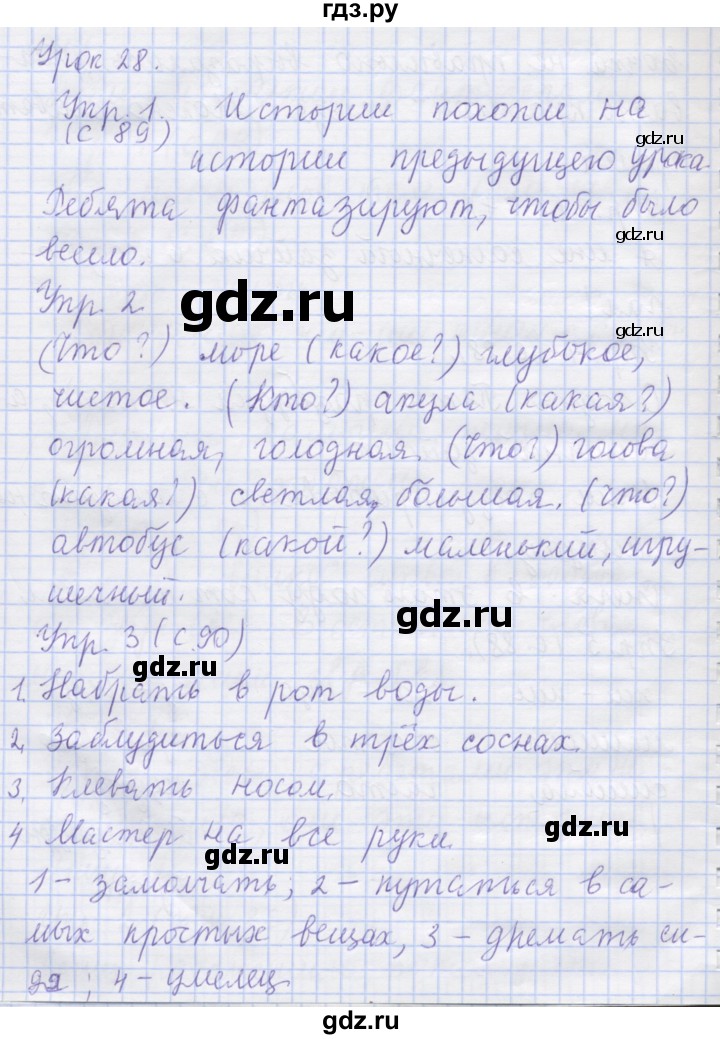 гдз.ру
Урок 28.
Упр. 1. Истории похожи на
(с 89)
gdz.ru
истории предыдущего урока.
Ребята фантазируют, чтобы было
gdz.ru
весело.
gdz.ru
Упр. 2
(Что?) море (какое?) глубокое,
gdz.ru
чистое. (Кто?) акула (какая?)
огромная, голодная. (Что?) голова
(какая?) светлая, большая. (что?)
gdz.ru
автобус (какой?) маленький, игру-
шечный.
gdz.ru
Упр. 3 (с 90)
gdz.ru
1. Набрать в рот воды.
2. Заблудиться в трёх соснах.
3. Клевать носом.
4 Мастер на все руки.
gdz.ru
gdz.ru
1 - замолчать; 2 - путаться в са-
мых простых вещах, 3 - дремать си-
дя; 4 - умелец
gdz.ru